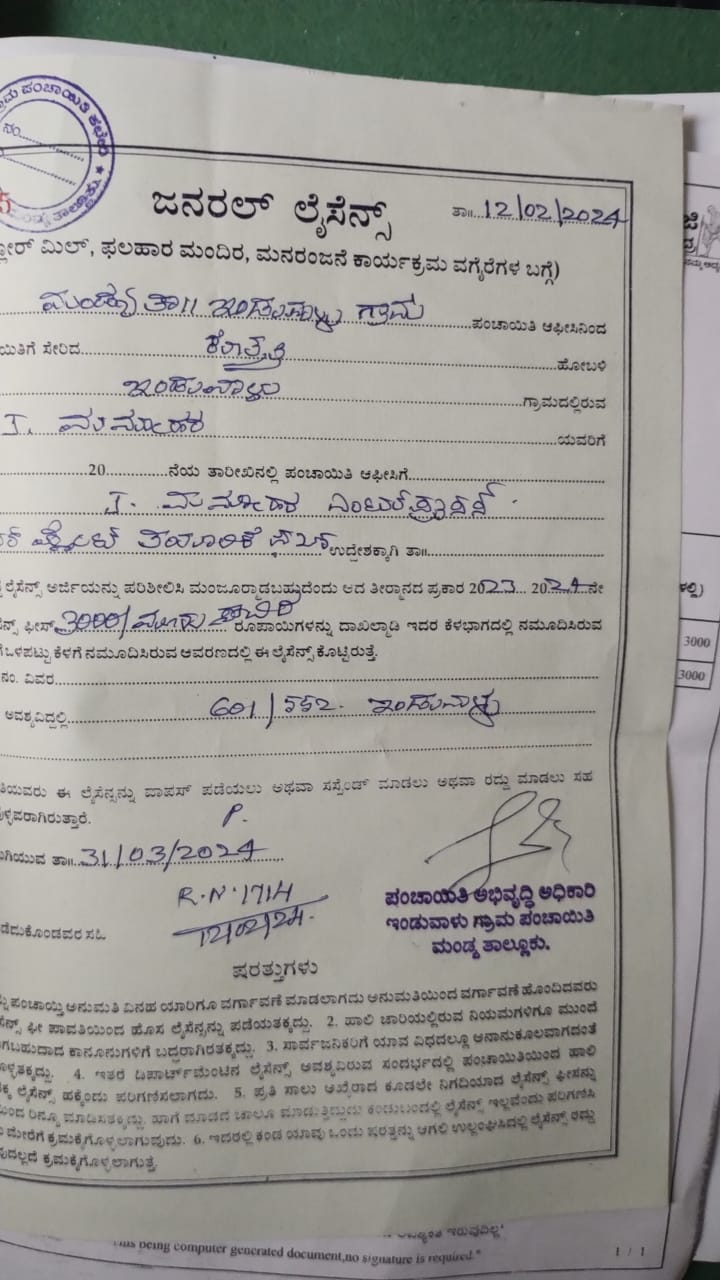 ಗ್ರಾಮ ಪಂಚಾಯಿತಿ ಕಛೇರಿ ★
ನಂ.
ಮಂಡ್ಯ ತಾಲ್ಲೂಕು
ಜನರಲ್ ಲೈಸೆನ್ಸ್
ತಾ॥ 12/02/2024
ಫ್ಲೋರ್ ಮಿಲ್, ಫಲಹಾರ ಮಂದಿರ, ಮನರಂಜನೆ ಕಾರ್ಯಕ್ರಮ ವಗೈರೆಗಳ ಬಗ್ಗೆ)
ಮಂಡ್ಯ ತಾ॥ ಇಂಡುವಾಳು ಗ್ರಾಮ ಪಂಚಾಯಿತಿ ಆಫೀಸಿನಿಂದ
ಯಿತಿಗೆ ಸೇರಿದ ಕೊತ್ತತ್ತಿ ಹೋಬಳಿ
ಇಂಡುವಾಳು ಗ್ರಾಮದಲ್ಲಿರುವ
I. ಮನೋಹರ ಯವರಿಗೆ
20 ನೆಯ ತಾರೀಖಿನಲ್ಲಿ ಪಂಚಾಯಿತಿ ಆಫೀಸಿಗೆ
I. ಮನೋಹರ ಎಂಟರ್‌ಪ್ರೈಸಸ್
ತಯಾರಿಕೆ ಉದ್ದೇಶಕ್ಕಾಗಿ ತಾ॥
ಲೈಸೆನ್ಸ್ ಅರ್ಜಿಯನ್ನು ಪರಿಶೀಲಿಸಿ ಮಂಜೂರ್‍ಮಾಡಬಹುದೆಂದು ಆದ ತೀರ್ಮಾನದ ಪ್ರಕಾರ 2023 2024 ನೇ
ನ್ಸ್ ಫೀಸ್ 3000/ ಮೂರು ಸಾವಿರ ರೂಪಾಯಿಗಳನ್ನು ದಾಖಲ್ಮಾಡಿ ಇದರ ಕೆಳಭಾಗದಲ್ಲಿ ನಮೂದಿಸಿರುವ
ಗೆ ಒಳಪಟ್ಟು ಕೆಳಗೆ ನಮೂದಿಸಿರುವ ಆವರಣದಲ್ಲಿ ಈ ಲೈಸೆನ್ಸ್ ಕೊಟ್ಟಿರುತ್ತೆ.
ನಂ. ವಿವರ
ಅವಶ್ಯವಿದ್ದಲ್ಲಿ 601/552. ಇಂಡುವಾಳು
ತಿಯವರು ಈ ಲೈಸೆನ್ಸನ್ನು ವಾಪಸ್ ಪಡೆಯಲು ಅಥವಾ ಸಸ್ಪೆಂಡ್ ಮಾಡಲು ಅಥವಾ ರದ್ದು ಮಾಡಲು ಸಹ
ಳ್ಳವರಾಗಿರುತ್ತಾರೆ. P.
ಗಿಯುವ ತಾ॥ 31/03/2024
R.N. 1714
12/02/24.
ಪಂಚಾಯಿತಿ ಅಭಿವೃದ್ಧಿ ಅಧಿಕಾರಿ
ಇಂಡುವಾಳು ಗ್ರಾಮ ಪಂಚಾಯಿತಿ
ಮಂಡ್ಯ ತಾಲ್ಲೂಕು.
ಡೆದುಕೊಂಡವರ ಸಹಿ
ಷರತ್ತುಗಳು
ಪಂಚಾಯ್ತಿ ಅನುಮತಿ ವಿನಹ ಯಾರಿಗೂ ವರ್ಗಾವಣೆ ಮಾಡಲಾಗದು ಅನುಮತಿಯಿಂದ ವರ್ಗಾವಣೆ ಹೊಂದಿದವರು
ನ್ಸ್ ಫೀ ಪಾವತಿಯಿಂದ ಹೊಸ ಲೈಸೆನ್ಸನ್ನು ಪಡೆಯತಕ್ಕದ್ದು. 2. ಹಾಲಿ ಜಾರಿಯಲ್ಲಿರುವ ನಿಯಮಗಳಿಗೂ ಮುಂದೆ
ಗಬಹುದಾದ ಕಾನೂನುಗಳಿಗೆ ಬದ್ಧರಾಗಿರತಕ್ಕದ್ದು. 3. ಸಾರ್ವಜನಿಕರಿಗೆ ಯಾವ ವಿಧದಲ್ಲೂ ಅನಾನುಕೂಲವಾಗದಂತೆ
ಳ್ಳತಕ್ಕದ್ದು. 4. ಇತರೆ ಡಿಪಾರ್ಟ್‌ಮೆಂಟಿನ ಲೈಸೆನ್ಸ್ ಅವಶ್ಯವಿರುವ ಸಂದರ್ಭದಲ್ಲಿ ಪಂಚಾಯಿತಿಯಿಂದ ಹಾಲಿ
ಲೈಸೆನ್ಸ್ ಹಕ್ಕೆಂದು ಪರಿಗಣಿಸಲಾಗದು. 5. ಪ್ರತಿ ಸಾಲು ಅಖೈರಾದ ಕೂಡಲೇ ನಿಗದಿಯಾದ ಲೈಸೆನ್ಸ್ ಫೀಸನ್ನು
ಯಿಂದ ರಿನ್ಯೂ ಮಾಡಿಸತಕ್ಕದ್ದು. ಹಾಗೆ ಮಾಡದೆ ಚಾಲೂ ಮಾಡುತ್ತಿದ್ದುದು ಕಂಡುಬಂದಲ್ಲಿ ಲೈಸೆನ್ಸ್ ಇಲ್ಲವೆಂದು ಪರಿಗಣಿಸಿ
ಮೇರೆಗೆ ಕ್ರಮಕೈಗೊಳ್ಳಲಾಗುವುದು. 6. ಇದರಲ್ಲಿ ಕಂಡ ಯಾವು ಒಂದು ಷರತ್ತನ್ನು ಆಗಲಿ ಉಲ್ಲಂಘಿಸಿದಲ್ಲಿ ಲೈಸೆನ್ಸ್ ರದ್ದು
ವುದಲ್ಲದೆ ಕ್ರಮಕೈಗೊಳ್ಳಲಾಗುತ್ತೆ.
3000
3000
This being computer generated document,no signature is required."
1 / 1